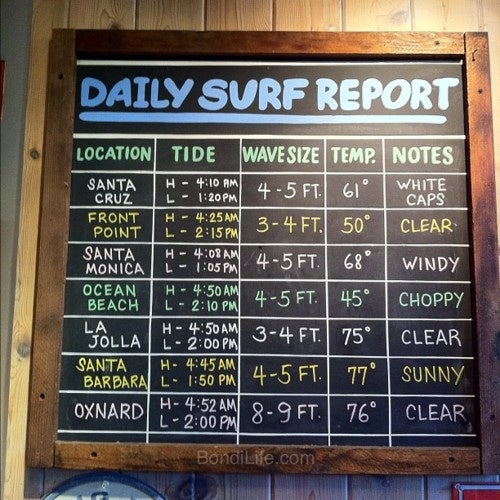 DAILY SURF REPORT
LOCATION TIDE WAVE SIZE TEMP. NOTES
SANTA CRUZ H - 4:10 AM L - 1:20PM 4-5 FT. 61° WHITE CAPS
FRONT POINT H - 4:25AM L - 2:15PM 3-4 FT. 50° CLEAR
SANTA MONICA H - 4:08AM L - 1:05PM 4-5 FT. 68° WINDY
OCEAN BEACH H - 4:50AM L - 2:10 PM 4-5 FT. 45° CHOPPY
LA JOLLA H - 4:50AM L - 2:00 PM 3-4 FT. 75° CLEAR
SANTA BARBARA H - 4:45 AM L - 1:50 PM 4-5 FT. 77° SUNNY
OXNARD H - 4:52AM L - 2:00 PM 8-9 FT. 76° CLEAR
BondiLife.com